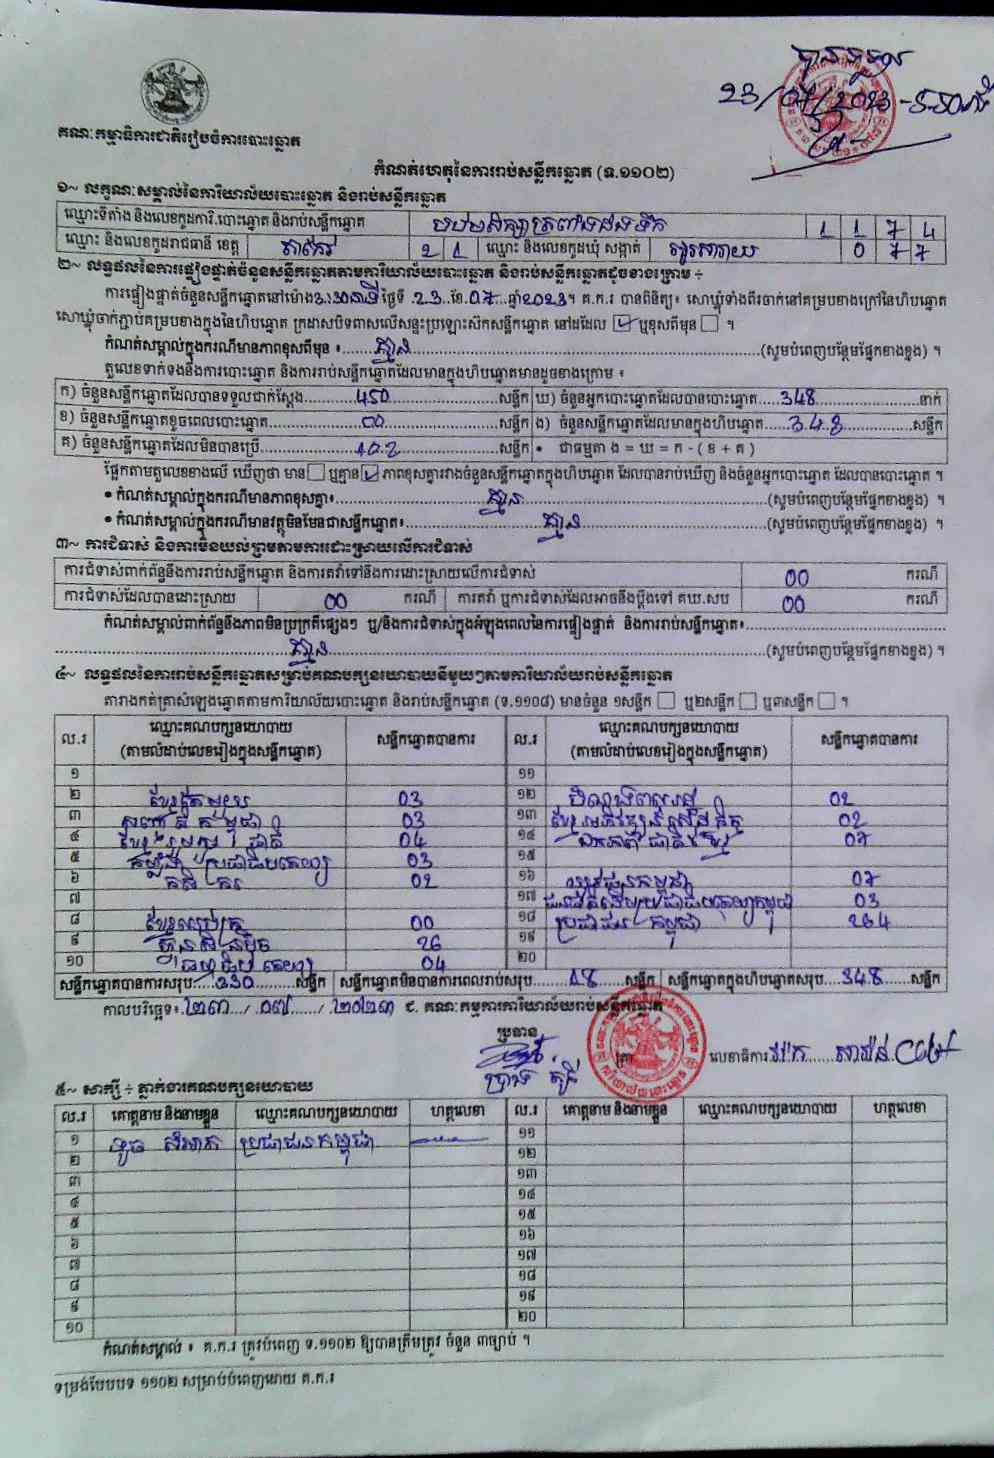 បានទទួល
23/07/2023
គណៈកម្មាធិការជាតិរៀបចំការបោះឆ្នោត
កំណត់ហេតុនៃការរាប់សន្លឹកឆ្នោត (ទ.១១០២)
១~ លក្ខណៈសម្គាល់នៃការិយាល័យបោះឆ្នោត និងរាប់សន្លឹកឆ្នោត
ឈ្មោះទីតាំង និងលេខកូដការិ.បោះឆ្នោត និងរាប់សន្លឹកឆ្នោត 1 1 7 4
ឈ្មោះ និងលេខកូដរាជធានី ខេត្ត តាកែវ 2 1 ឈ្មោះ និងលេខកូដឃុំ សង្កាត់ 0 7 7
២~ លទ្ធផលនៃការផ្ទៀងផ្ទាត់ចំនួនសន្លឹកឆ្នោតតាមការិយាល័យបោះឆ្នោត និងរាប់សន្លឹកឆ្នោតដូចខាងក្រោម ៖
ការផ្ទៀងផ្ទាត់ចំនួនសន្លឹកឆ្នោតនៅម៉ោង 3:30នាទី ថ្ងៃទី 23 ខែ 07 ឆ្នាំ2023។ គ.ក.រ បានពិនិត្យ៖ សោឃ្លុំទាំងពីរចាក់នៅគម្របខាងក្រៅនៃហិបឆ្នោត
សោឃ្លុំចាក់ភ្ជាប់គម្របខាងក្នុងនៃហិបឆ្នោត ក្រដាសបិទពាសលើសន្ទះប្រឡោះស៊កសន្លឹកឆ្នោត នៅដដែល ☑ ឬខុសពីមុន ☐ ។
កំណត់សម្គាល់ក្នុងករណីមានភាពខុសពីមុន ៖ គ្មាន (សូមបំពេញបន្ថែមផ្នែកខាងខ្នង) ។
តួលេខទាក់ទងនឹងការបោះឆ្នោត និងការរាប់សន្លឹកឆ្នោតដែលមានក្នុងហិបឆ្នោតមានដូចខាងក្រោម ៖
ក) ចំនួនសន្លឹកឆ្នោតដែលបានទទួលជាក់ស្តែង 450 សន្លឹក ឃ) ចំនួនអ្នកបោះឆ្នោតដែលបានបោះឆ្នោត 348 នាក់
ខ) ចំនួនសន្លឹកឆ្នោតខូចពេលបោះឆ្នោត 00 សន្លឹក ង) ចំនួនសន្លឹកឆ្នោតដែលមានក្នុងហិបឆ្នោត 348 សន្លឹក
គ) ចំនួនសន្លឹកឆ្នោតដែលមិនបានប្រើ 102 សន្លឹក • ជាធម្មតា ង = ឃ = ក - ( ខ + គ )
ផ្អែកតាមតួលេខខាងលើ ឃើញថា មាន ☐ ឬគ្មាន ☑ ភាពខុសគ្នារវាងចំនួនសន្លឹកឆ្នោតក្នុងហិបឆ្នោត ដែលបានរាប់ឃើញ និងចំនួនអ្នកបោះឆ្នោត ដែលបានបោះឆ្នោត ។
• កំណត់សម្គាល់ក្នុងករណីមានភាពខុសគ្នា៖ គ្មាន (សូមបំពេញបន្ថែមផ្នែកខាងខ្នង) ។
• កំណត់សម្គាល់ក្នុងករណីមានវត្ថុមិនមែនជាសន្លឹកឆ្នោត៖ គ្មាន (សូមបំពេញបន្ថែមផ្នែកខាងខ្នង) ។
៣~ ការជំទាស់ និងការមិនយល់ព្រមតាមការដោះស្រាយលើការជំទាស់
ការជំទាស់ពាក់ព័ន្ធនឹងការរាប់សន្លឹកឆ្នោត និងការតវ៉ាទៅនឹងការដោះស្រាយលើការជំទាស់ 00 ករណី
ការជំទាស់ដែលបានដោះស្រាយ 00 ករណី ការតវ៉ា ឬការជំទាស់ដែលអាចនឹងប្តឹងទៅ គឃ.សប 00 ករណី
កំណត់សម្គាល់ពាក់ព័ន្ធនឹងភាពមិនប្រក្រតីផ្សេងៗ ឬ/និងការជំទាស់ក្នុងអំឡុងពេលនៃការផ្ទៀងផ្ទាត់ និងការរាប់សន្លឹកឆ្នោត៖
គ្មាន (សូមបំពេញបន្ថែមផ្នែកខាងខ្នង) ។
៤~ លទ្ធផលនៃការរាប់សន្លឹកឆ្នោតសម្រាប់គណបក្សនយោបាយនីមួយៗតាមការិយាល័យរាប់សន្លឹកឆ្នោត
តារាងកត់ត្រាសំឡេងឆ្នោតតាមការិយាល័យបោះឆ្នោត និងរាប់សន្លឹកឆ្នោត (ទ.១១០៨) មានចំនួន ១សន្លឹក ☐ ឬ២សន្លឹក ☐ ឬ៣សន្លឹក ☐ ។
ល.រ ឈ្មោះគណបក្សនយោបាយ (តាមលំដាប់លេខរៀងក្នុងសន្លឹកឆ្នោត) សន្លឹកឆ្នោតបានការ ល.រ ឈ្មោះគណបក្សនយោបាយ (តាមលំដាប់លេខរៀងក្នុងសន្លឹកឆ្នោត) សន្លឹកឆ្នោតបានការ
១ ១១
២ ខ្មែររួបរួម 03 ១២ 02
៣ 03 ១៣ 02
៤ 04 ១៤ ឯកភាពជាតិខ្មែរ 07
៥ កម្លាំងប្រជាធិបតេយ្យ 03 ១៥
៦ កសិករ 02 ១៦ 07
៧ ១៧ 03
៨ 00 ១៨ ប្រជាជនកម្ពុជា 264
៩ ហ៊្វុនស៊ិនប៉ិច 26 ១៩
១០ ធម្មាធិបតេយ្យ 04 ២០
សន្លឹកឆ្នោតបានការសរុប 330 សន្លឹក សន្លឹកឆ្នោតមិនបានការពេលរាប់សរុប 18 សន្លឹក សន្លឹកឆ្នោតក្នុងហិបឆ្នោតសរុប 348 សន្លឹក
កាលបរិច្ឆេទ៖ ២៣/០៧/២០២៣ ៩. គណៈកម្មការការិយាល័យរាប់សន្លឹកឆ្នោត
ប្រធាន
ត្រា លេខាធិការ
៥~ សាក្សី ÷ ភ្នាក់ងារគណបក្សនយោបាយ
ល.រ គោត្តនាម និងនាមខ្លួន ឈ្មោះគណបក្សនយោបាយ ហត្ថលេខា ល.រ គោត្តនាម និងនាមខ្លួន ឈ្មោះគណបក្សនយោបាយ ហត្ថលេខា
១ ប្រជាជនកម្ពុជា ១១
២ ១២
៣ ១៣
៤ ១៤
៥ ១៥
៦ ១៦
៧ ១៧
៨ ១៨
៩ ១៩
១០ ២០
កំណត់សម្គាល់ ៖ គ.ក.រ ត្រូវបំពេញ ទ.១១០២ ឱ្យបានត្រឹមត្រូវ ចំនួន ៣ច្បាប់ ។
ទម្រង់បែបបទ ១១០២ សម្រាប់បំពេញដោយ គ.ក.រ